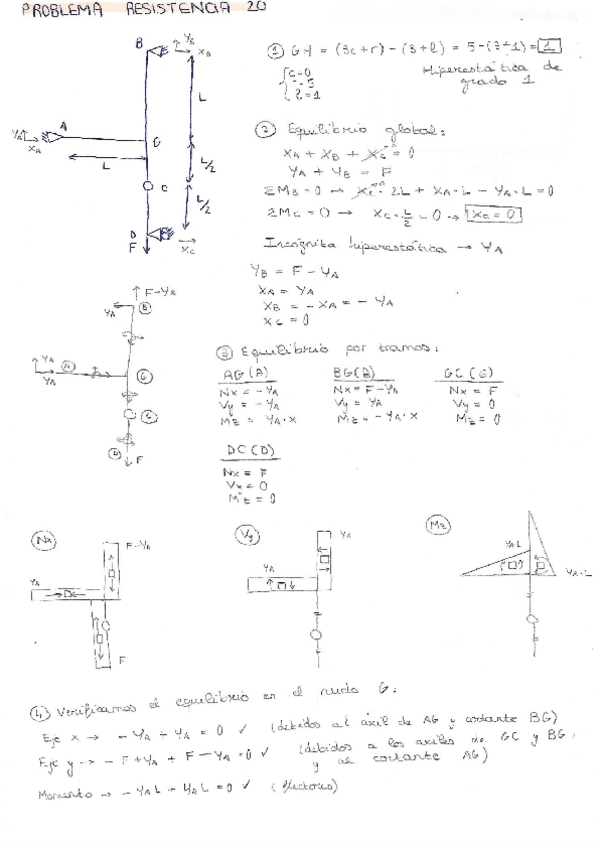 PROBLEMA RESISTENCIA 20
B
Y_B
X_B
① GH = (3c+r) - (3+l) = 5-(3+1) = 1
c=0
r=5
l=1
Hiperestática de grado 1
L
Y_A
A
X_A
G
L
L/2
C
L/2
D
F
X_C
② Equilibrio global:
X_A + X_B + X_C = 0
Y_A + Y_B = F
ΣM_B = 0 → X_C · 2L + X_A · L - Y_A · L = 0
ΣM_C = 0 → X_C · L/2 = 0 → X_C = 0
Incógnita hiperestática → Y_A
Y_B = F - Y_A
X_A = Y_A
X_B = - X_A = - Y_A
X_C = 0
F-Y_A
Y_A
B
Y_A
A
Y_A
G
C
D
F
③ Equilibrio por tramos:
AG(A)
Nx = - Y_A
Vy = - Y_A
Mz = Y_A · X
BG(B)
Nx = F-Y_A
Vy = Y_A
Mz = - Y_A · X
GC(G)
Nx = F
Vy = 0
Mz = 0
DC(D)
Nx = F
Vy = 0
Mz = 0
Nx
F-Y_A
Y_A
F
Vy
Y_A
Y_A
Mz
Y_A·L
Y_A·L
④ Verificamos el equilibrio en el nudo G:
Eje x → - Y_A + Y_A = 0 ✓ (debidos al axil de AG y cortante BG)
Eje y → - F + Y_A + F - Y_A = 0 ✓ (debidos a los axiles de GC y BG
y al cortante AG)
Momento → - Y_A L + Y_A L = 0 ✓ (flectores)